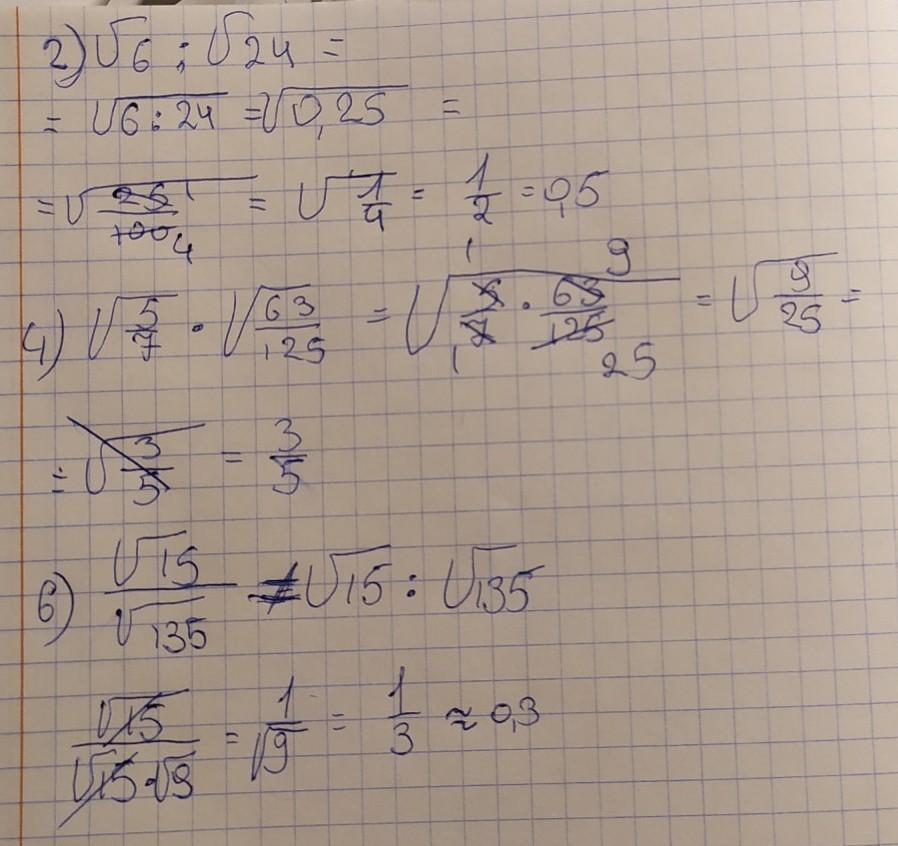 2) √6 : √24 =
= √6:24 = √0,25 =
= √25/100 1 4 = √1/4 = 1/2 = 0,5
4) √5/7 · √63/125 = √5/7 · 63/125 1 9 1 25 = √9/25 =
= √3/5 = 3/5
6) √15/√135 = √15 : √135
√15/√15·√9 = 1/√9 = 1/3 ≈ 0,3